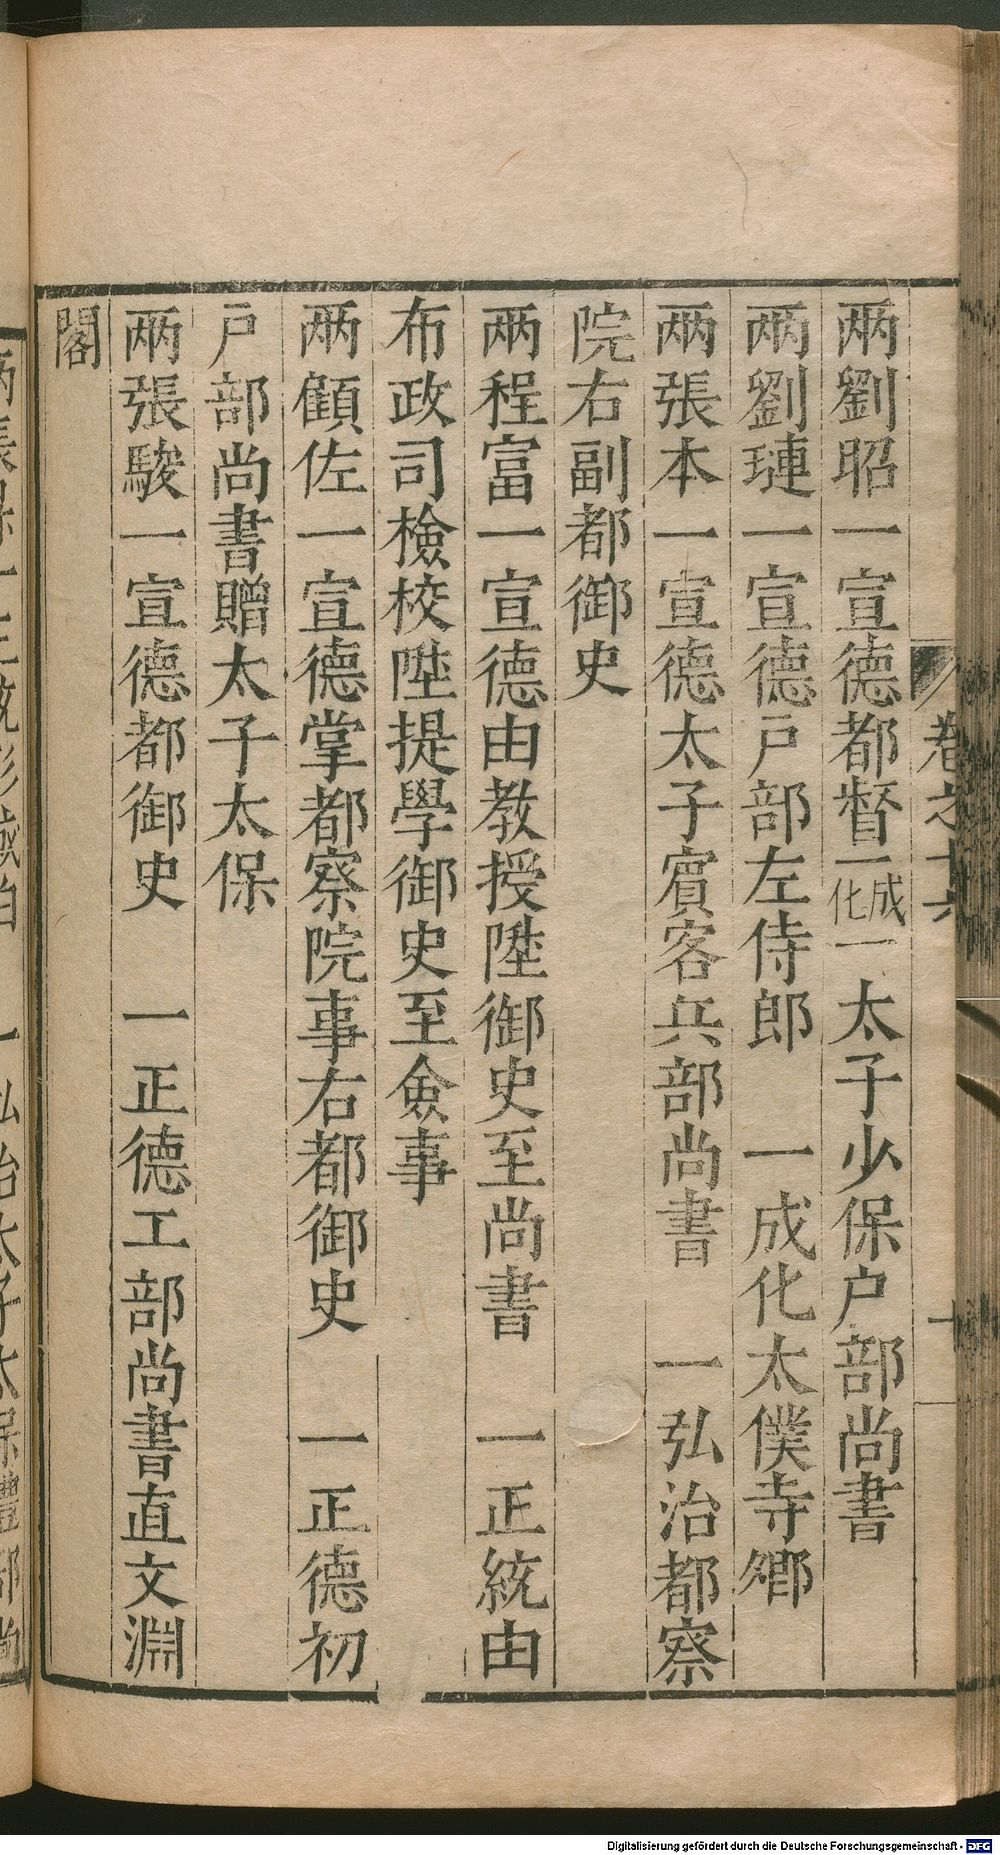 卷之十六
兩劉昭一宣德都督一成化一太子少保户部尚書
兩劉璉一宣德户部左侍郎 一成化太僕寺卿
兩張本一宣德太子賓客兵部尚書 一弘治都察
院右副都御史
兩程富一宣德由教授陞御史至尚書 一正統由
布政司檢校陞提學御史至僉事
兩顧佐一宣德掌都察院事右都御史 一正德初
户部尚書贈太子太保
兩張駿一宣德都御史 一正德工部尚書直文淵
閣
一弘治太子太保禮部尚
Digitalisierung gefördert durch die Deutsche Forschungsgemeinschaft - DFG